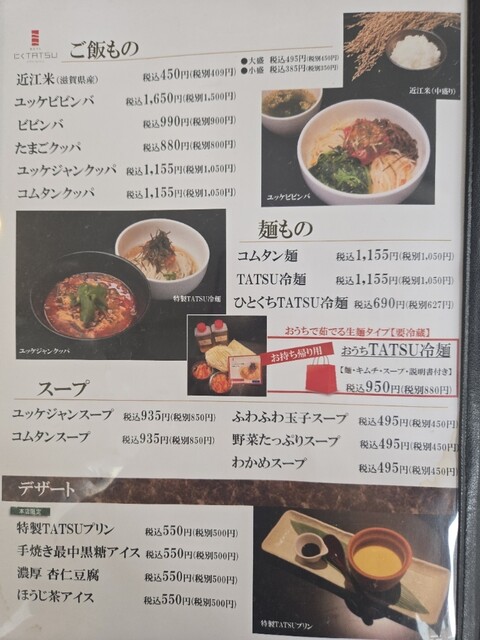 とくTATSU
ご飯もの
●大盛 税込495円(税別450円)
●小盛 税込385円(税別350円)
近江米(滋賀県産) 税込450円(税別409円)
ユッケビビンバ 税込1,650円(税別1,500円)
ビビンバ 税込990円(税別900円)
たまごクッパ 税込880円(税別800円)
ユッケジャンクッパ 税込1,155円(税別1,050円)
コムタンクッパ 税込1,155円(税別1,050円)
近江米(中盛り)
ユッケビビンバ
特製TATSU冷麺
ユッケジャンクッパ
麺もの
コムタン麺 税込1,155円(税別1,050円)
TATSU冷麺 税込1,155円(税別1,050円)
ひとくちTATSU冷麺 税込690円(税別627円)
おうちで茹でる生麺タイプ【要冷蔵】
お持ち帰り用
おうちTATSU冷麺
【麺・キムチ・スープ・説明書付き】
税込950円(税別880円)
スープ
ユッケジャンスープ 税込935円(税別850円)
コムタンスープ 税込935円(税別850円)
ふわふわ玉子スープ 税込495円(税別450円)
野菜たっぷりスープ 税込495円(税別450円)
わかめスープ 税込495円(税別450円)
デザート
本店限定
特製TATSUプリン 税込550円(税別500円)
手焼き最中黒糖アイス 税込550円(税別500円)
濃厚 杏仁豆腐 税込550円(税別500円)
ほうじ茶アイス 税込550円(税別500円)
特製TATSUプリン